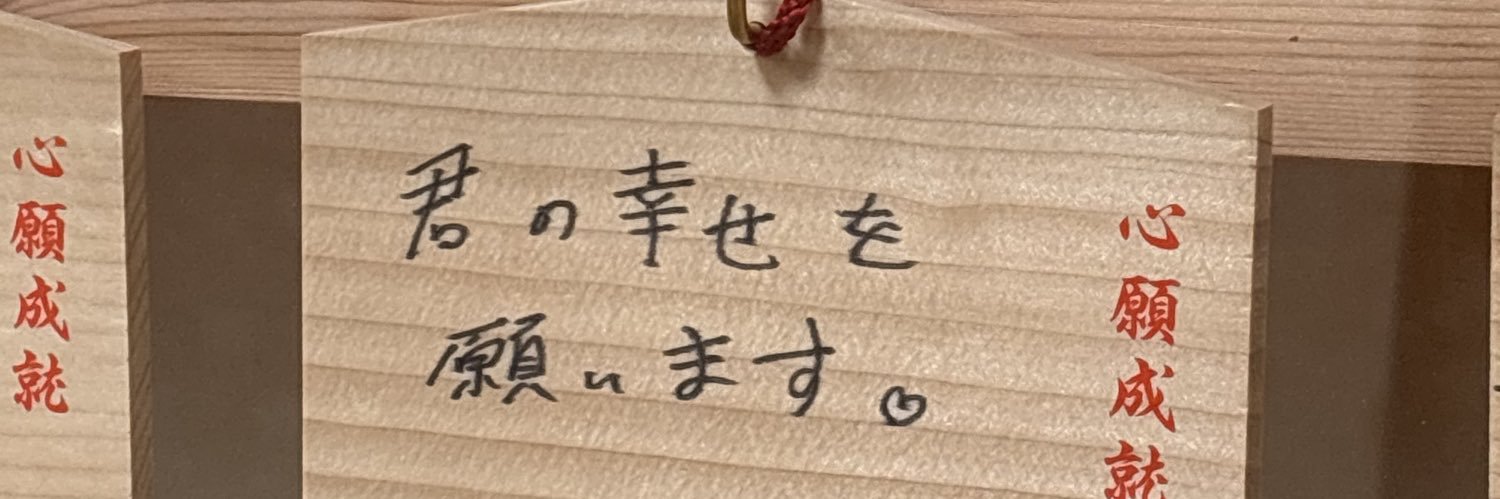 心願成就
君の幸せを
願います。
心願成就